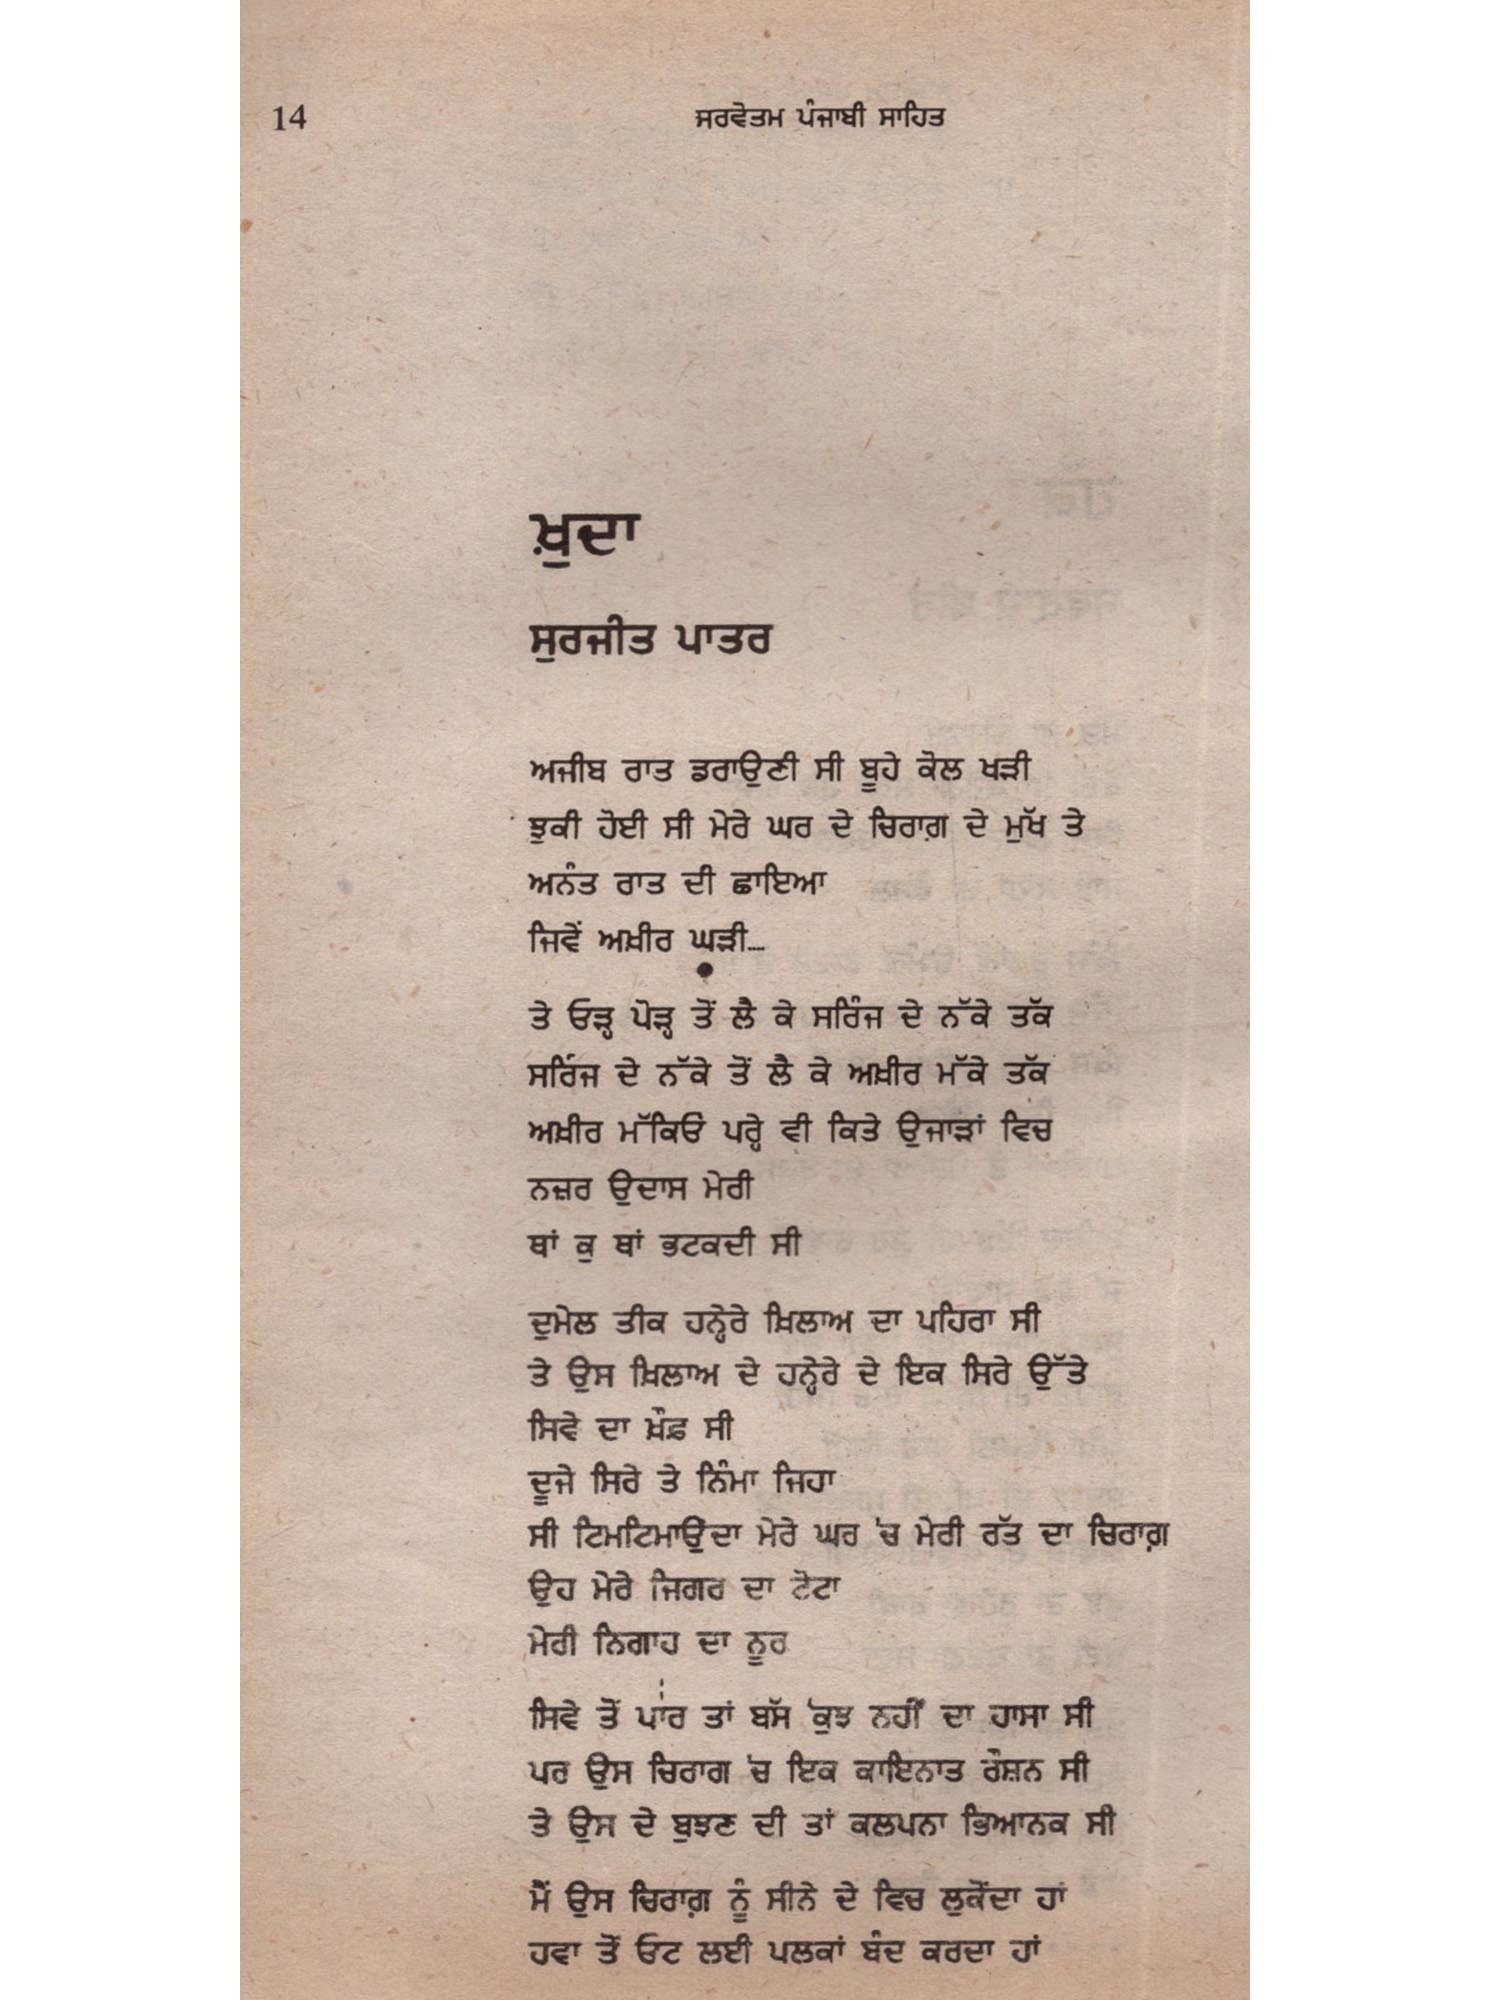 14
ਸਰਵੋਤਮ ਪੰਜਾਬੀ ਸਾਹਿਤ
ਖ਼ੁਦਾ
ਸੁਰਜੀਤ ਪਾਤਰ
ਅਜੀਬ ਰਾਤ ਡਰਾਉਣੀ ਸੀ ਬੂਹੇ ਕੋਲ ਖੜੀ
ਝੁਕੀ ਹੋਈ ਸੀ ਮੇਰੇ ਘਰ ਦੇ ਚਿਰਾਗ਼ ਦੇ ਮੁੱਖ ਤੇ
ਅਨੰਤ ਰਾਤ ਦੀ ਛਾਇਆ
ਜਿਵੇਂ ਅਖ਼ੀਰ ਘੜੀ...
ਤੇ ਓੜ੍ਹ ਪੋੜ੍ਹ ਤੋਂ ਲੈ ਕੇ ਸਰਿੰਜ ਦੇ ਨੱਕੇ ਤੱਕ
ਸਰਿੰਜ ਦੇ ਨੱਕੇ ਤੋਂ ਲੈ ਕੇ ਅਖ਼ੀਰ ਮੱਕੇ ਤੱਕ
ਅਖ਼ੀਰ ਮੱਕਿਓਂ ਪਰ੍ਹੇ ਵੀ ਕਿਤੇ ਉਜਾੜਾਂ ਵਿਚ
ਨਜ਼ਰ ਉਦਾਸ ਮੇਰੀ
ਥਾਂ ਕੁ ਥਾਂ ਭਟਕਦੀ ਸੀ
ਦੁਮੇਲ ਤੀਕ ਹਨ੍ਹੇਰੇ ਖ਼ਿਲਾਅ ਦਾ ਪਹਿਰਾ ਸੀ
ਤੇ ਉਸ ਖ਼ਿਲਾਅ ਦੇ ਹਨ੍ਹੇਰੇ ਦੇ ਇਕ ਸਿਰੇ ਉੱਤੇ
ਸਿਵੇ ਦਾ ਖ਼ੌਫ਼ ਸੀ
ਦੂਜੇ ਸਿਰੇ ਤੇ ਨਿੰਮਾ ਜਿਹਾ
ਸੀ ਟਿਮਟਿਮਾਉਂਦਾ ਮੇਰੇ ਘਰ 'ਚ ਮੇਰੀ ਰੱਤ ਦਾ ਚਿਰਾਗ਼
ਉਹ ਮੇਰੇ ਜਿਗਰ ਦਾ ਟੋਟਾ
ਮੇਰੀ ਨਿਗਾਹ ਦਾ ਨੂਰ
ਸਿਵੇ ਤੋਂ ਪਾਰ ਤਾਂ ਬੱਸ 'ਕੁਝ ਨਹੀਂ' ਦਾ ਹਾਸਾ ਸੀ
ਪਰ ਉਸ ਚਿਰਾਗ 'ਚ ਇਕ ਕਾਇਨਾਤ ਰੌਸ਼ਨ ਸੀ
ਤੇ ਉਸ ਦੇ ਬੁਝਣ ਦੀ ਤਾਂ ਕਲਪਨਾ ਭਿਆਨਕ ਸੀ
ਮੈਂ ਉਸ ਚਿਰਾਗ਼ ਨੂੰ ਸੀਨੇ ਦੇ ਵਿਚ ਲੁਕੋਂਦਾ ਹਾਂ
ਹਵਾ ਤੋਂ ਓਟ ਲਈ ਪਲਕਾਂ ਬੰਦ ਕਰਦਾ ਹਾਂ